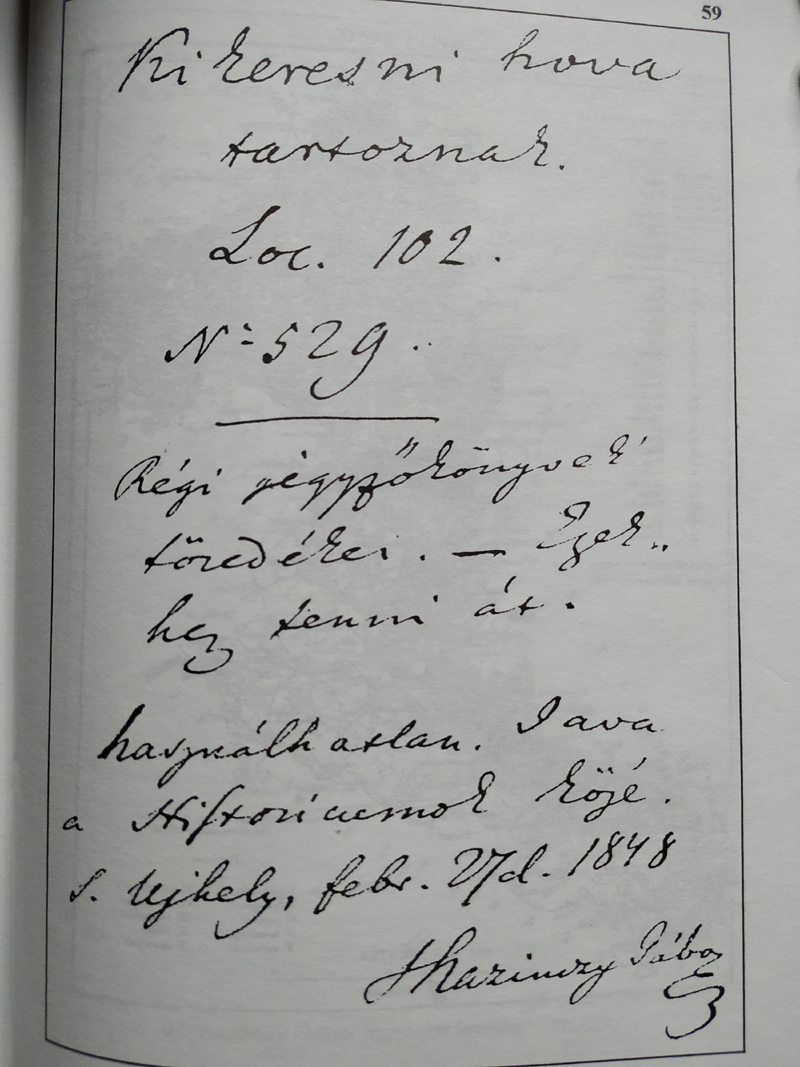 59
Kikeresni hova
tartoznak.
Loc. 102.
N: 529.
Régi jegyzőkönyvek'
töredékei. — Ezek„
hez tenni át.
használhatlan. Java
a Historicumok közé.
S. Ujhely, febr. 27d. 1848
Kazinczy Gábor